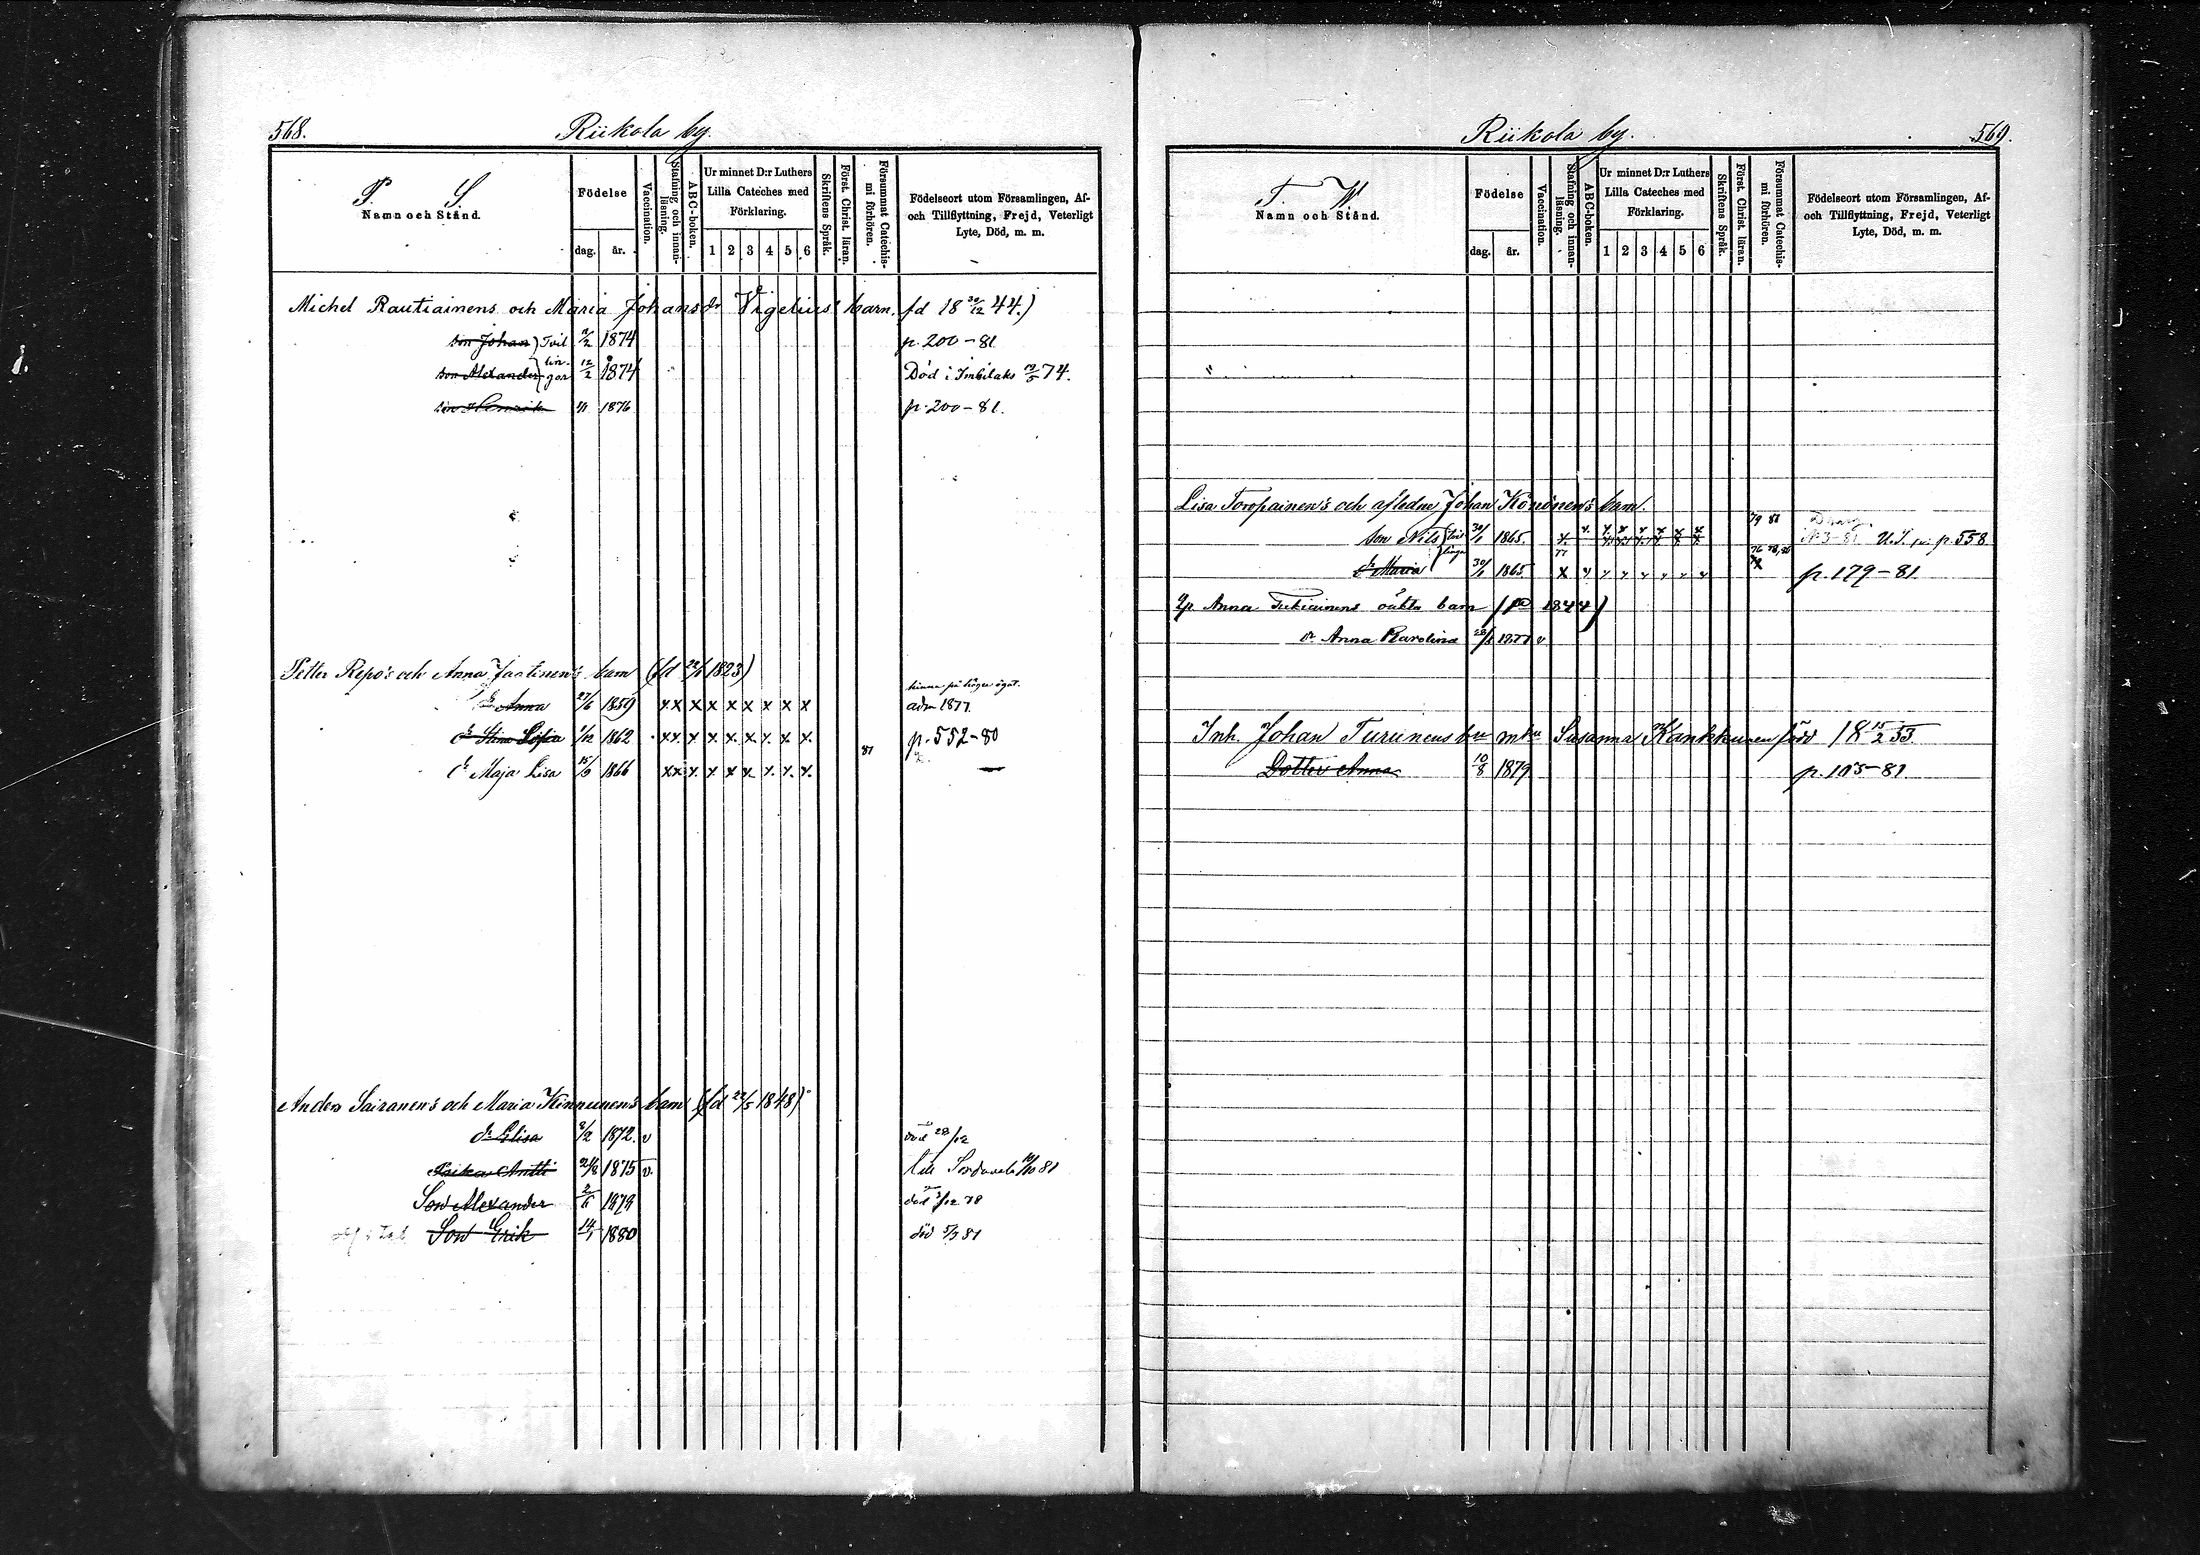 568. Riikola by.
P. S.
Namn och Stånd.
Födelse
dag. år.
Vaccination.
Stafning och innan-
läsning.
ABC-boken.
Ur minnet D:r Luthers
Lilla Cateches med
Förklaring.
1 2 3 4 5 6
Skriftens Språk.
Först. Christ. läran.
Försummat Catechis-
mi förhören.
Födelseort utom Församlingen, Af-
och Tillflyttning, Frejd, Veterligt
Lyte, Död, m. m.
Michel Rautiainens och Maria Johansdr Vigelius' barn. fd 18 30/12 44.)
son Johan Tvil 12/2 1874 p. 200-81
son Alexander lin-gar 12/2 1874 Död i Imbilaks 74.
son Henrik 1876 p. 200-81.
Petter Repo's och Anna Jantinen's barn (fd 22/1 1823)
hinna på högra ögat.
dr Anna 27/6 1859 x x x x x x x x adm 1877
dr Stina Sofia 1/12 1862 x x x x x x x x p. 552-80
dr Maja Lisa 15/9 1866 x x x x x x x x 81
Anders Sairanen's och Maria Kinnunen's barn (fd 22/5 1848)
dr Elisa 2/2 1872. v död 28/12
Antti 1875 v. till Sordavala 81
Son Alexander 1879 död 78
Son Erik 14/1 1880 död 5/3 81
Riikola by. 569.
T. W.
Namn och Stånd.
Födelse
dag. år.
Vaccination.
Stafning och innan-
läsning.
ABC-boken.
Ur minnet D:r Luthers
Lilla Cateches med
Förklaring.
1 2 3 4 5 6
Skriftens Språk.
Först. Christ. läran.
Försummat Catechis-
mi förhören.
Födelseort utom Församlingen, Af-
och Tillflyttning, Frejd, Veterligt
Lyte, Död, m. m.
Lisa Toropainen's och afledne Johan Könönen's barn.
son Nils 30/1 1865. 79 81 p. 558
dr Maria 30/1 1865 x p. 179-81
Anna oäkta barn (fd 1844)
dr Anna Karolina 1877 v
Inh. Johan Turunens m Susanna Kankkunen född 18 15/2 53.
Dotter Anna 10/8 1879 p. 105-81.